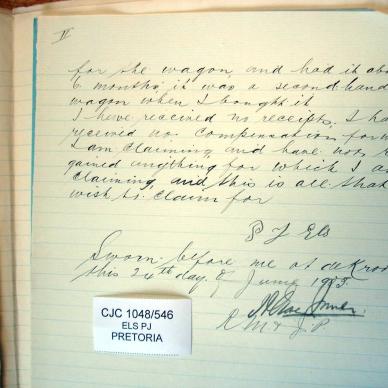 V
for the wagon, and had it abo
6 months, it was a second-hand
wagon when I bought it
I have received no receipts, I ha
received no compensation for
I am claiming and have not r
gained anything for which I a
claiming, and this is all that
wish to claim for
P J Els
Sworn before me at
this 24th day of June 1903.
R M & J.P.
CJC 1048/546
ELS PJ
PRETORIA